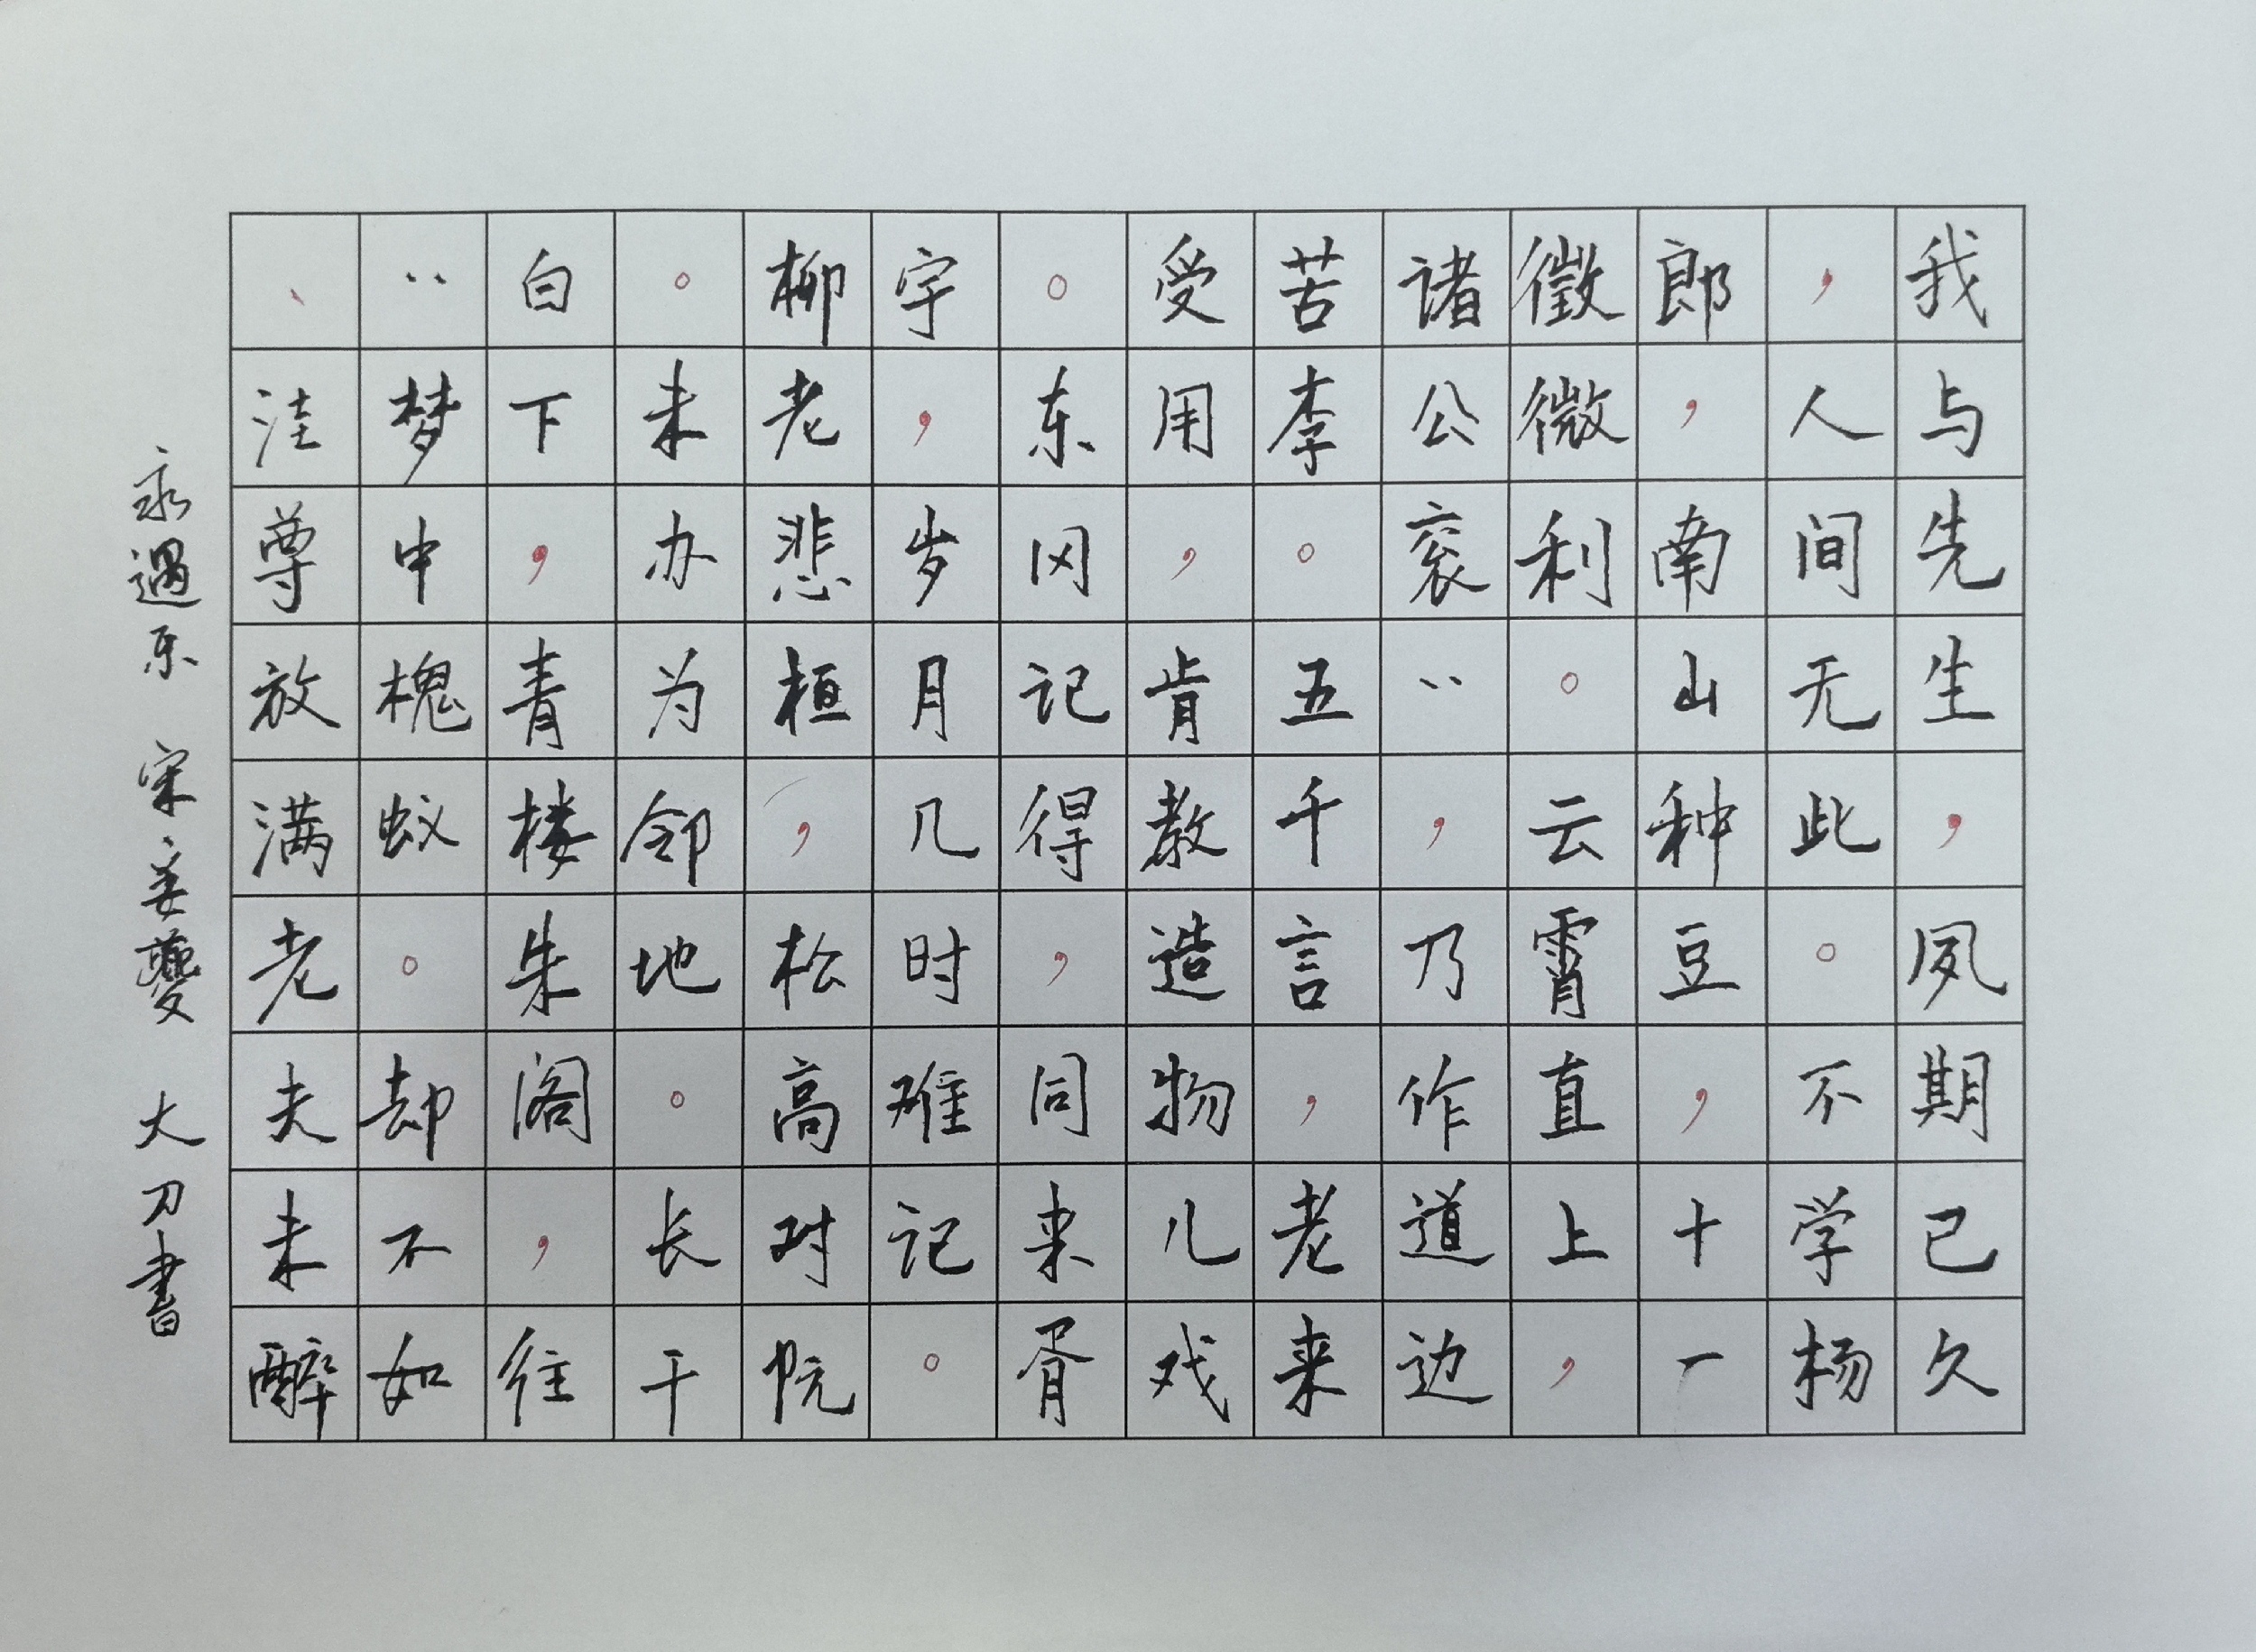 我与先生，夙期已久
，人间无此。不学杨
郎，南山种豆，十一
徵微利。云霄直上，
诸公衮‥，乃作道边
苦李。五千言，老来
受用，肯教造物儿戏
。东冈记得，同来胥
宇，岁月几时难记。
柳老悲桓，松高对阮
。未办为邻地。长干
白下，青楼朱阁，往
‥梦中槐蚁。却不如
、洼尊放满老夫未醉
永遇乐 宋、姜夔 大刀書